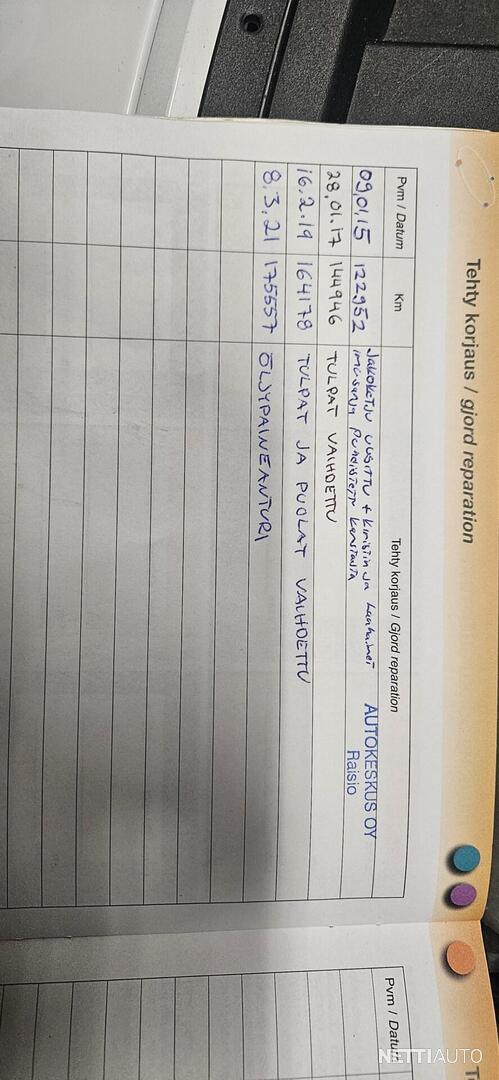 Tehty korjaus / gjord reparation
Pvm / Datum Km Tehty korjaus / Gjord reparation
09.01.15 122952 Jakoketju uusittu + kiristin ja
AUTOKESKUS OY
imusarja puhdistettu karstasta
Raisio
28.01.17 144946 TULPAT VAIHDETTU
16.2.19 164178 TULPAT JA PUOLAT VAIHDETTU
8.3.21 175557 ÖLJYPAINEANTURI
Pvm / Datum
NETTIAUTO